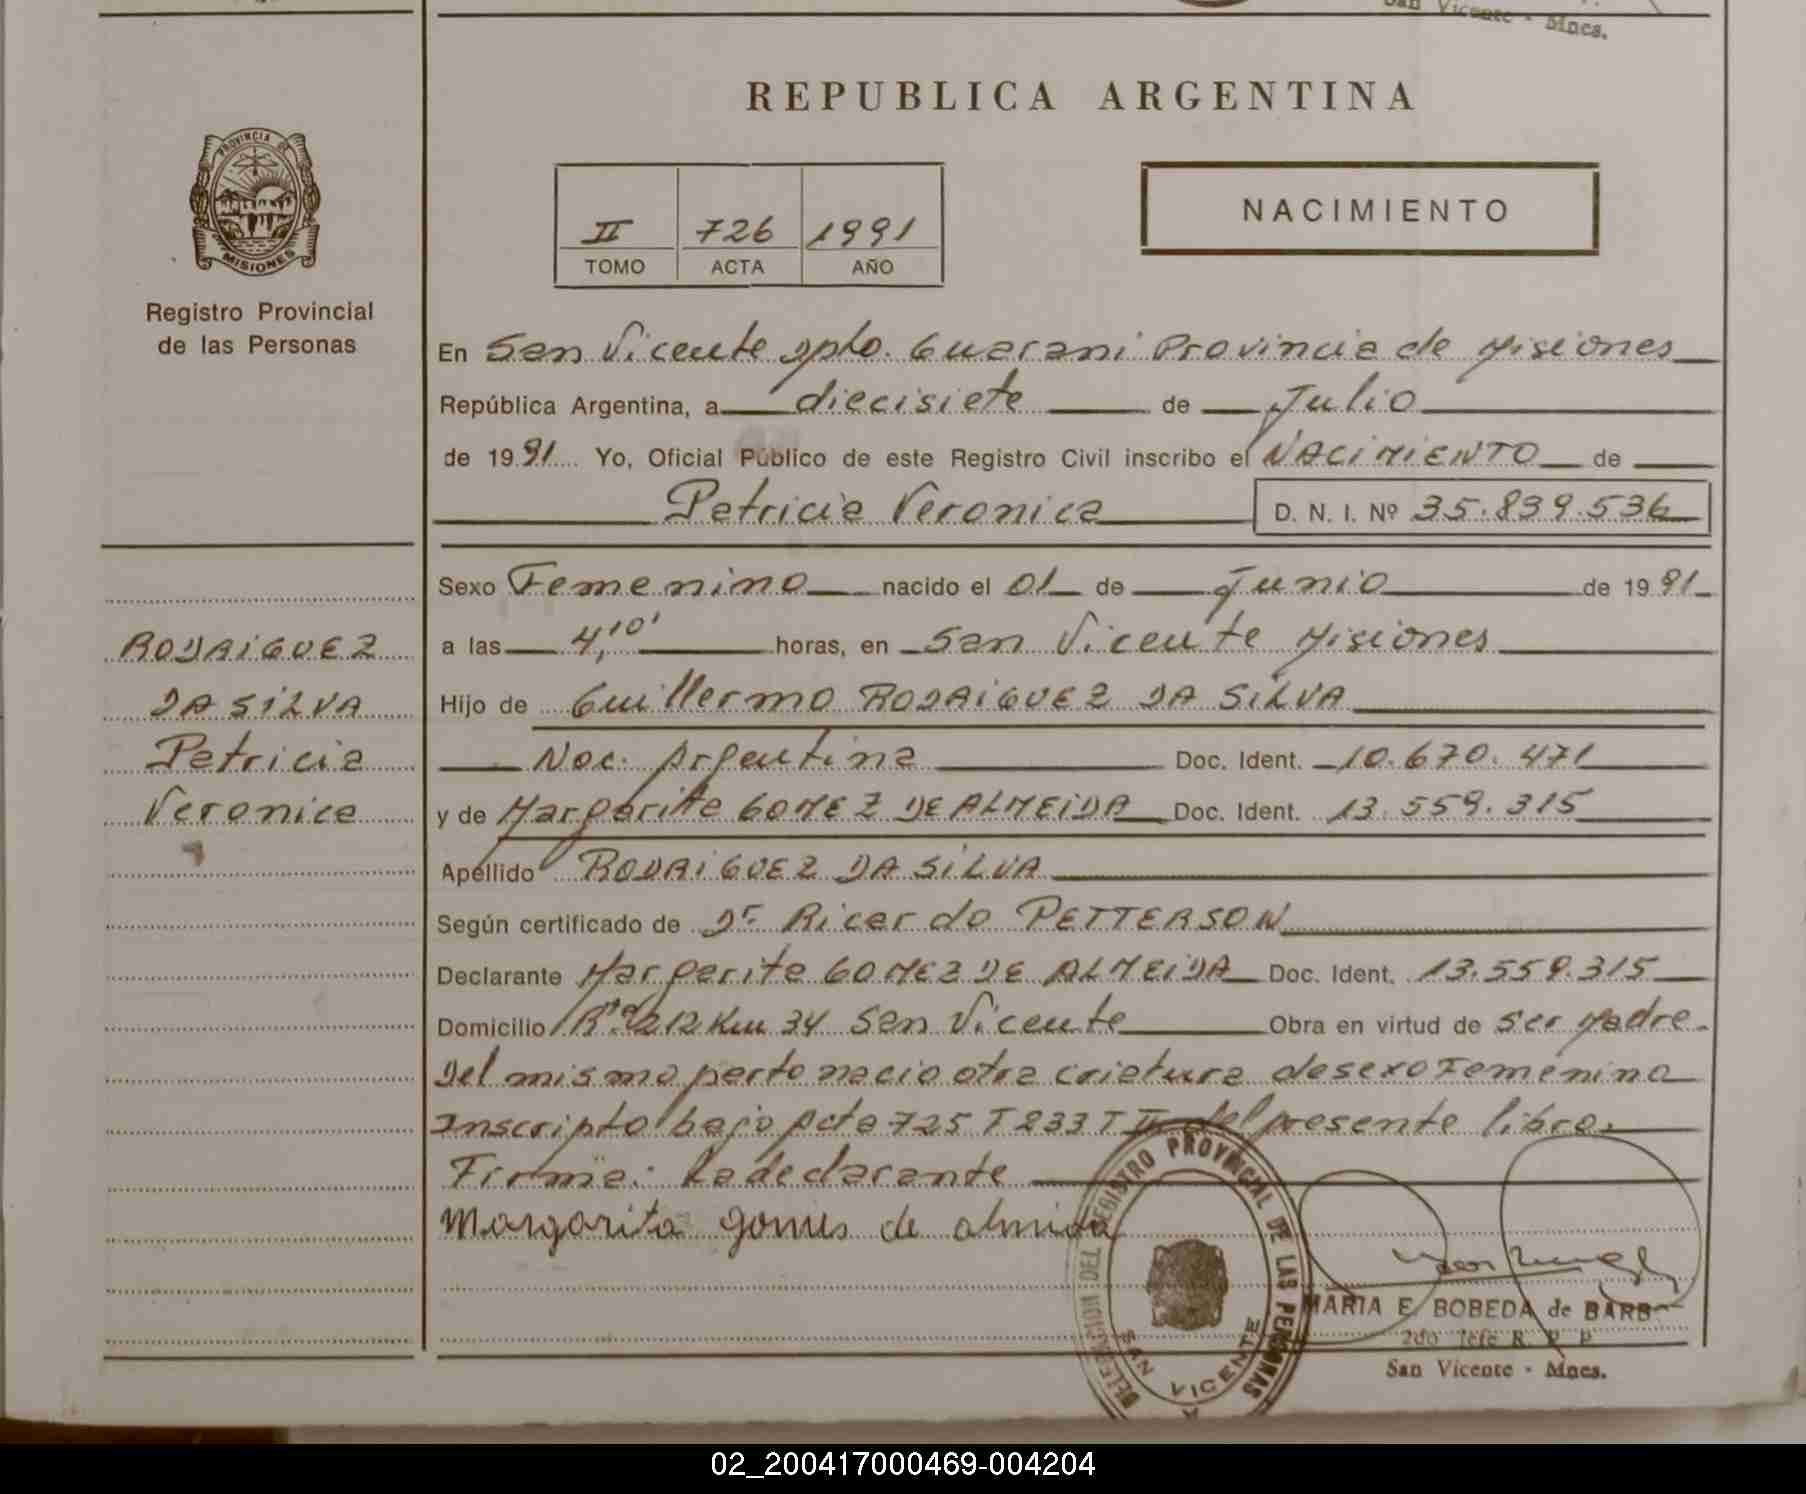 San Vicente - Mnes.
REPUBLICA ARGENTINA
PROVINCIA DE
MISIONES
Registro Provincial
de las Personas
II 726 1991
TOMO ACTA AÑO
NACIMIENTO
En San Vicente Dpto. Guarani Provincia de Misiones
República Argentina, a diecisiete de Julio
de 1991 Yo, Oficial Público de este Registro Civil inscribo el NACIMIENTO de
Patricia Veronica D. N. I. Nº 35.839.536
Sexo Femenino nacido el 01 de Junio de 1991
a las 4,10' horas, en San Vicente Misiones
Hijo de Guillermo RODRIGUEZ DA SILVA
Nac. Argentina Doc. Ident. 10.670.471
y de Margarita GOMEZ DE ALMEIDA Doc. Ident. 13.559.315
Apellido RODRIGUEZ DA SILVA
Según certificado de Dr Ricardo PETTERSON
Declarante Margarita GOMEZ DE ALMEIDA Doc. Ident. 13.559.315
Domicilio 212 Km 34 San Vicente Obra en virtud de ser Madre.
Del mismo parto nacio otra criatura de sexo Femenino
Inscripto bajo Acta 725 T 233 T II del presente libro.
Firma: La declarante
Margarita gomes de almida
RODRIGUEZ
DA SILVA
Patricia
Veronica
DELEGACION DEL REGISTRO PROVINCIAL DE LAS PERSONAS
SAN VICENTE
MARIA E. BOBEDA de BARB
2do Jefe R. P. P.
San Vicente - Mnes.
02_200417000469-004204